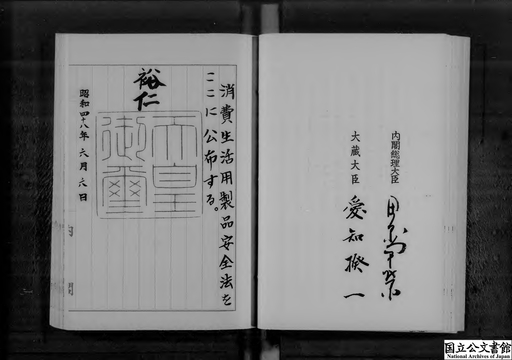 消費生活用製品安全法を
ここに公布する。
裕仁
天皇御璽
昭和四十八年六月六日
内閣総理大臣
田中角栄
大蔵大臣
愛知揆一
国立公文書館
National Archives of Japan